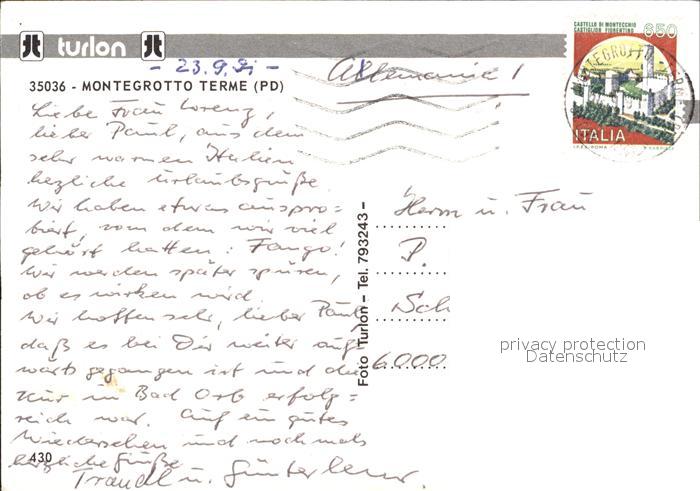 turlon
CASTELLO DI MONTECCHIO
CASTIGLION FIORENTINO
650
ITALIA
MONTEGROTTO
- 23.9.91 -
Allemania !
35036 - MONTEGROTTO TERME (PD)
Liebe Frau Lorenz,
lieber Paul, aus dem
sehr warmen Italien
herzliche Urlaubsgrüße.
Wir haben etwas auspro=
biert, von dem wir viel
gehört hatten: Fango!
Wir werden später spüren,
ob es wirken wird.
Wir hoffen sehr, lieber Paul
daß es bei Dir weiter auf=
wärts gegangen ist und die
Kur in Bad Orb erfolg=
reich war. Auf ein gutes
Wiedersehen und nochmals
herzliche Grüße
Traudl u. Günter
430
Foto Turlon - Tel. 793243 -
Herrn u. Frau
P.
Sch
6000
privacy protection
Datenschutz